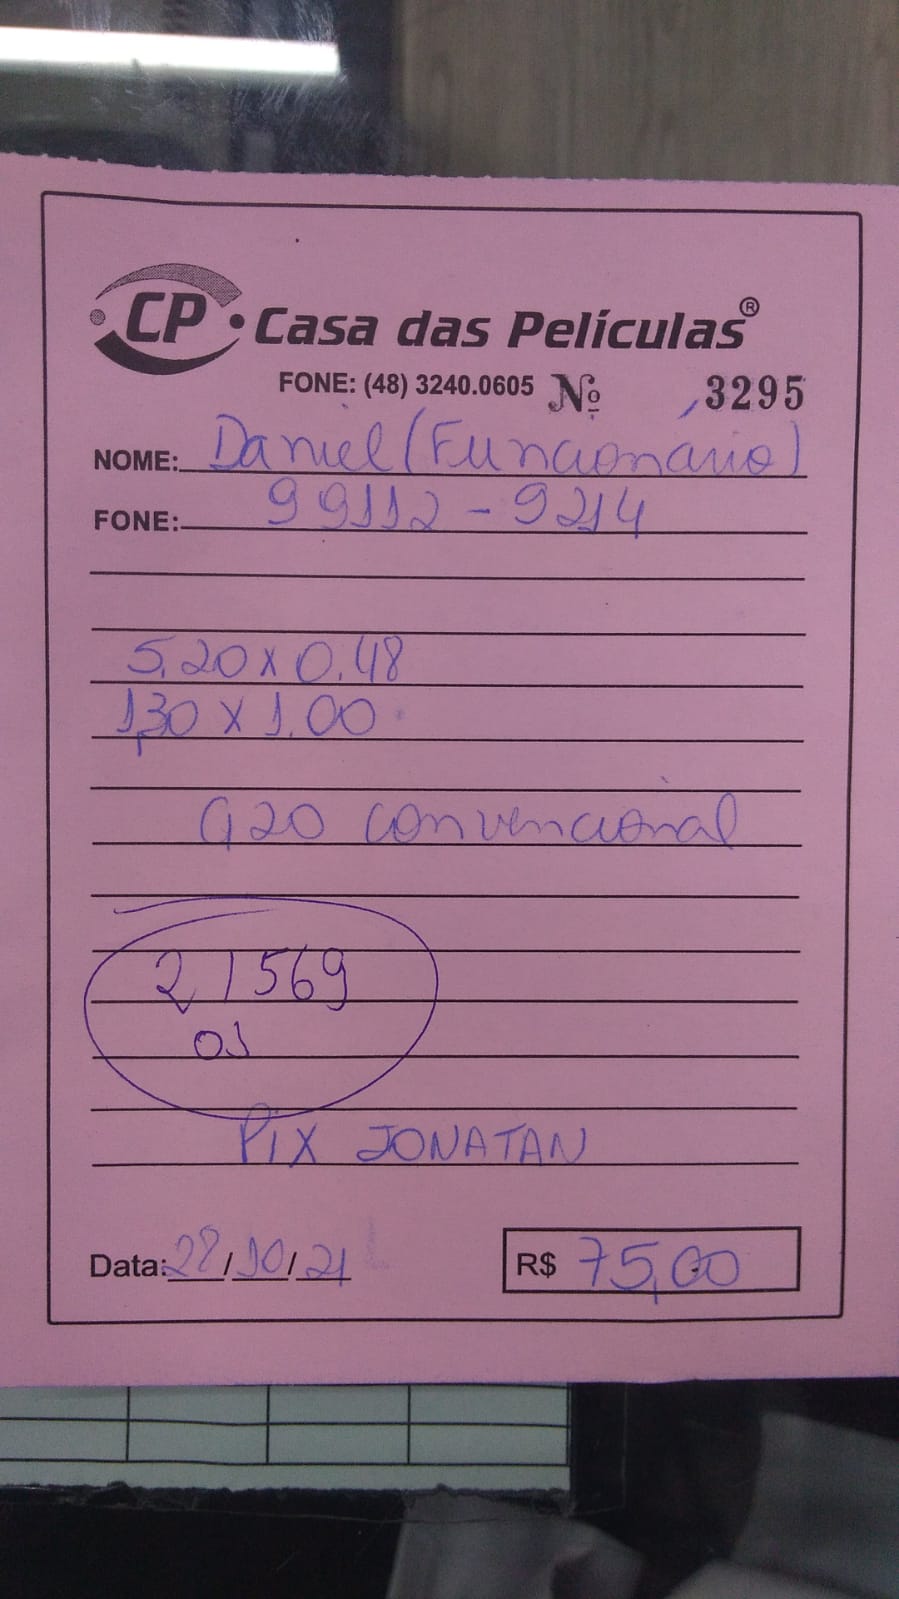 CP Casa das Películas®
FONE: (48) 3240.0605 Nº 3295
NOME: Daniel (Funcionario)
FONE: 99112-9214
5,20 x 0.48
1,30 x 1.00
G20 convencional
21569
OS
PIX JONATAN
Data: 28/10/21 R$ 75,00